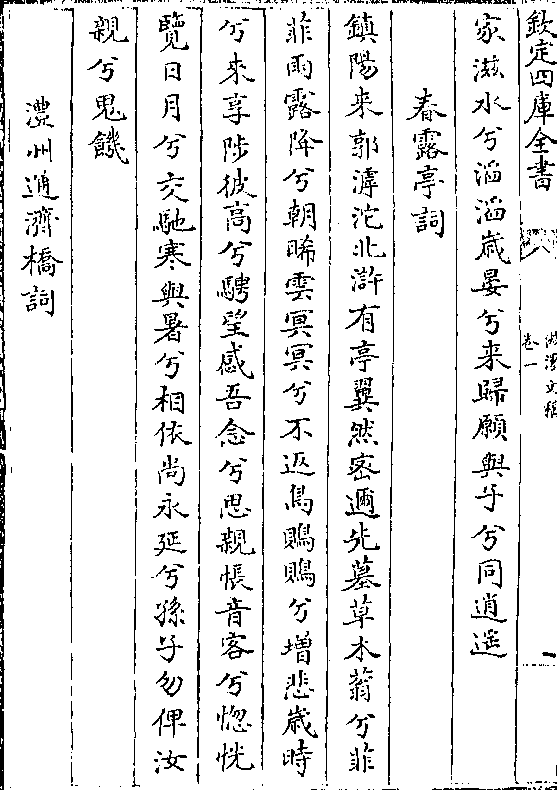 欽定四庫全書
卷一
家滋水兮滔滔歳晏兮来歸願與子兮同逍遥
春露亭詞
鎮陽来郭滹沱北滸有亭翼然宻邇先墓草木蓊兮菲
菲雨露降兮朝晞雲冥冥兮不返鳥鵙鵙兮増悲歳時
兮来享陟彼高兮騁望感吾念兮思親悵音客兮惚恍
覽日月兮交馳寒與暑兮相依尚永延兮孫子勿俾汝
親兮鬼饑
澧州通濟橋詞